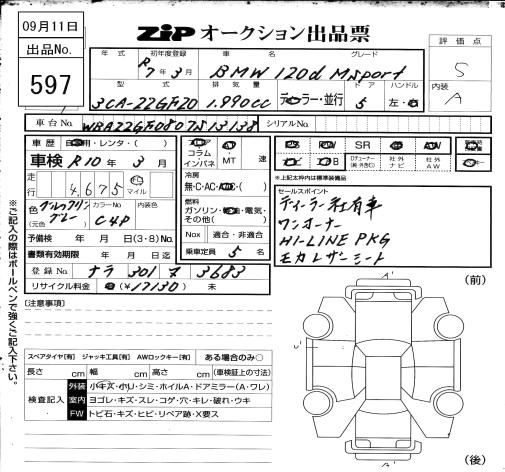 09月11日
ZIP オークション出品票
出品No.
597
評価点
S
内装
A
年式 初年度登録 車名 グレード
R7年3月 BMW 120d Msport
型式 排気量 ドア ハンドル
3CA-22GF20 1.990cc ディーラー・並行 5 左・
車台No. シリアルNo.
車歴 自家用・レンタ・( )
車検 R10年3月
走行 4,675 マイル
色 (元色) カラーNo. 内装色
グレー C4P
予備検 年 月 日(3・8)No.
書類有効期限 年 月 日迄
登録No. ナラ 301 3683
リサイクル料金 (¥17130) 未
コラム インパネ MT 速
冷房
無・C・AC・( )
燃料
ガソリン・軽油・電気・その他( )
Nox 適合・非適合
乗車定員 5名
SR AW
Dチューナー (純・外含む) 社外ナビ 社外AW
※上記太枠内は標準装備品
セールスポイント
ディーラー社有車
ワンオーナー
HI-LINE PKG
モカレザーシート
※ご記入の際はボールペンで強くご記入下さい。
(注意事項)
スペアタイヤ[有] ジャッキ工具[有] AWロックキー[有] ある場合のみ○
長さ cm 幅 cm 高さ cm (車検証上の寸法)
検査記入
外装 小キズ・小凹・シミ・ホイルA・ドアミラー(A・ワレ)
室内 ヨゴレ・キズ・スレ・コゲ・穴・キレ・破れ・ウキ
FW トビ石・キズ・ヒビ・リペア跡・X要ス
(前)
A'
U'
A'
(後)